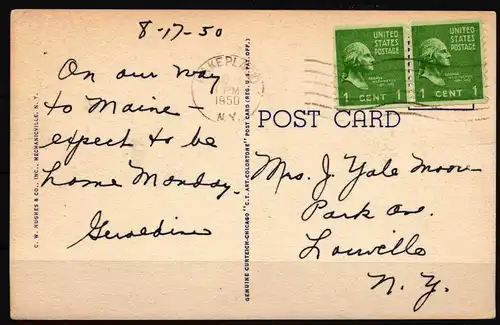 8-17-50
On our way
to Maine -
expect to be
home Monday.
Geraldine
LAKE PLACID
PM
1950
N.Y.
UNITED
STATES
POSTAGE
1 CENT 1
UNITED
STATES
POSTAGE
1 CENT 1
POST CARD
Mrs. J. Yale Moore
Park Ave.
Lowville
N. Y.
C. W. HUGHES & CO., INC., MECHANICVILLE, N. Y.
GENUINE CURTEICH-CHICAGO "C.T. ART-COLORTONE" POST CARD (REG. U.S. PAT. OFF.)